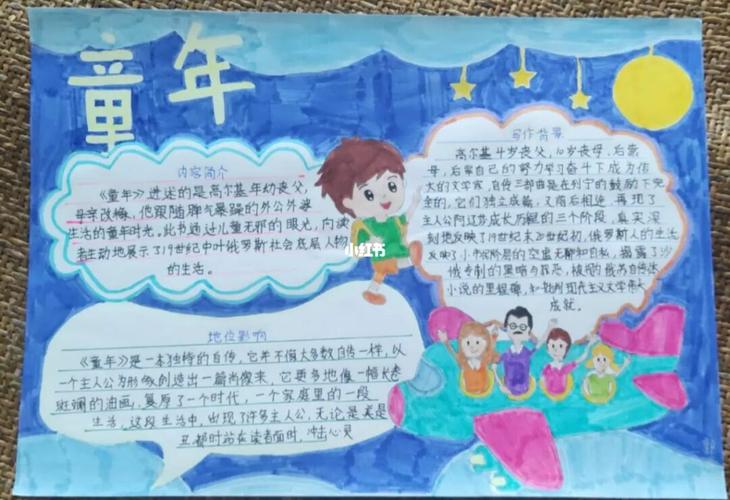 童年
内容简介
《童年》讲述的是高尔基年幼丧父,
母亲改嫁,他跟随脾气暴躁的外公外婆
生活的童年时光,此书通过儿童无邪的眼光,向读
者生动地展示了19世纪中叶俄罗斯社会底层人物
的生活。
写作背景
高尔基4岁丧父,10岁丧母,后蒙
母,后家自己的努力学习奋斗下成为伟
大的文学家,自传三部曲是在列宁的鼓励下完
全的,它们独立成篇,又前后相连,再现了
主人公阿辽莎成长历程的三个阶段,真实深
刻地反映了19世纪末20世纪初,俄罗斯人的生活
反映了小市民阶层的空虚无聊和自私,揭露了沙
俄专制的黑暗与罪恶,被称俄苏自传体
小说的里程碑,和批判现实主义文学伟大
成就。
小红书
地位影响
《童年》是一本独特的自传,它并不像大多数自传一样,以
一个主人公为形象创造出一篇肖像来,它更多地像一幅长卷
斑斓的油画,复原了一个时代,一个家庭里的一段
生活,这段生活中,出现了许多主人公,无论是美是
丑都时站在读者面前,冲击心灵